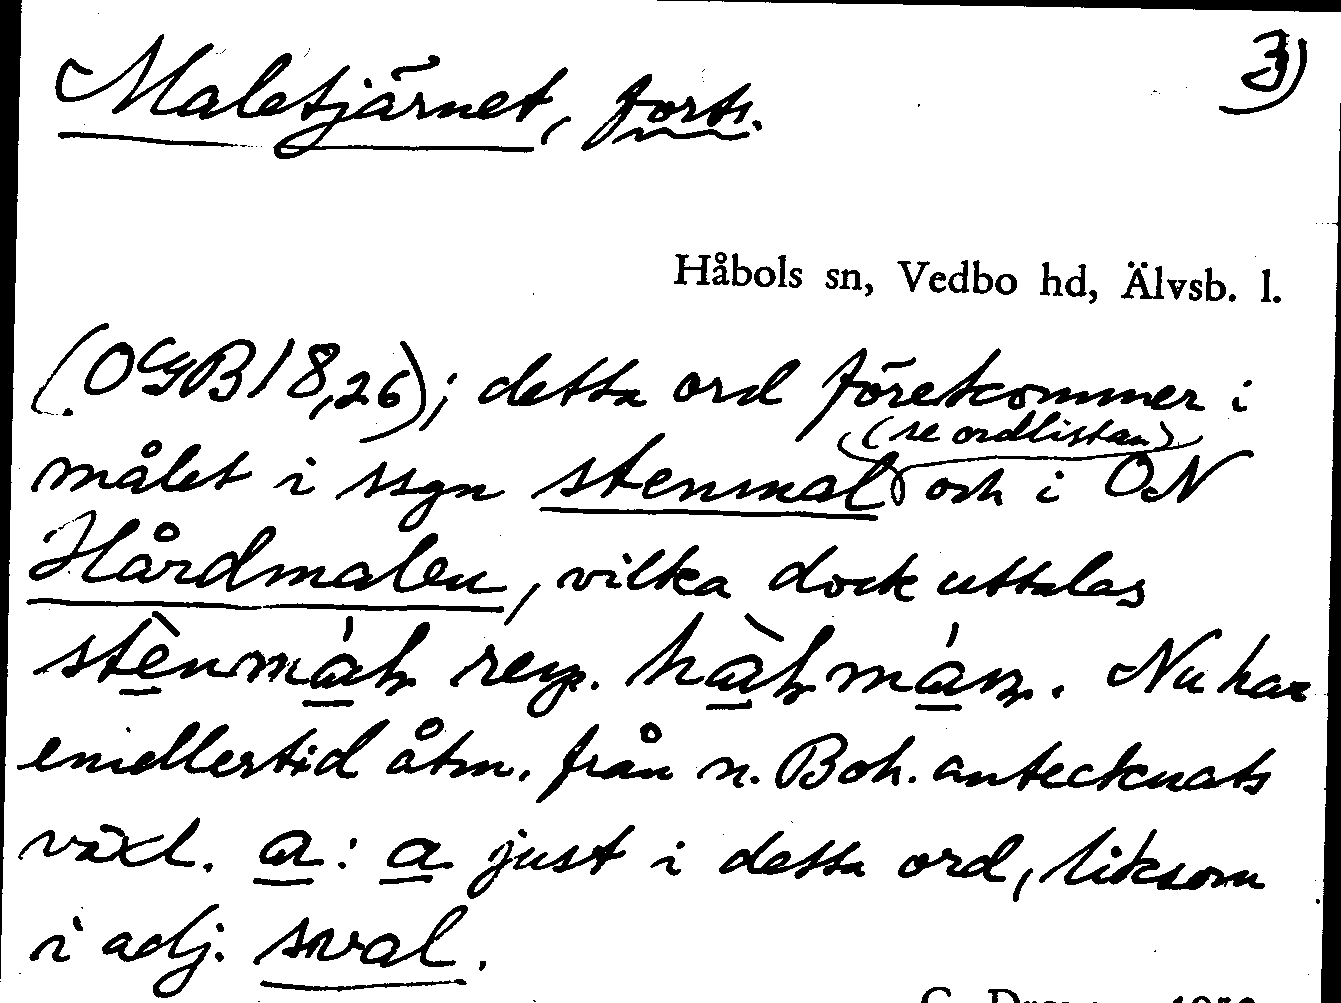 Maletjärnet, forts.
3)
Håbols sn, Vedbo hd, Älvsb. l.
(OGB 18,26); detta ord förekommer i
målet i ssgn stenmal (se ordlistan) och i ON
Hårdmalen, vilka dock uttalas
resp. Nu har
emellertid åtm. från n. Boh. antecknats
växl. a : a just i detta ord, liksom
i adj. sval.